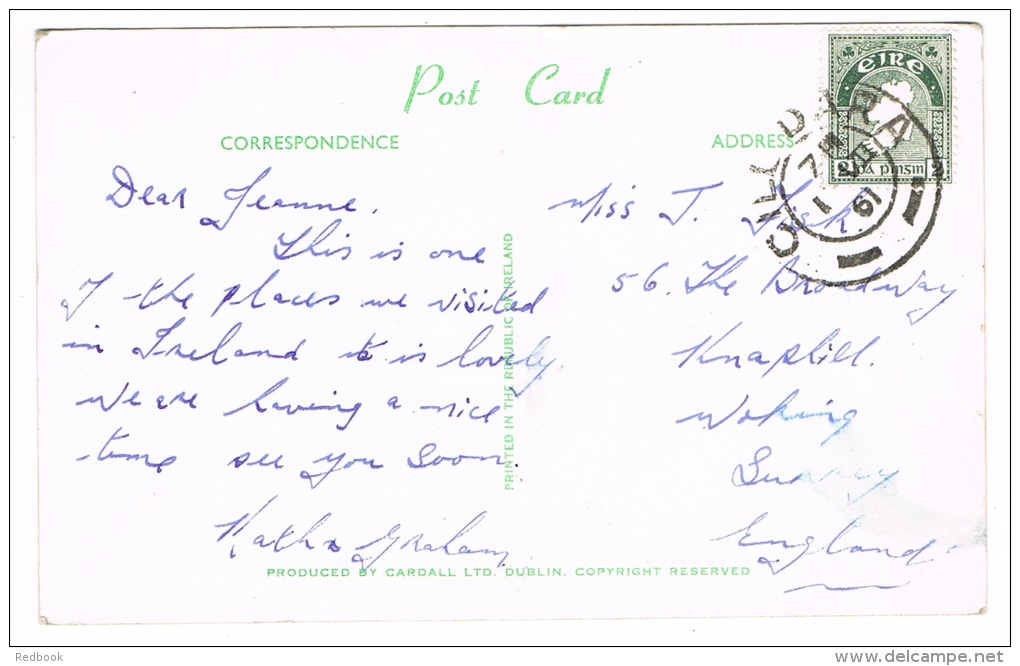 Post Card
CORRESPONDENCE
ADDRESS
éire
2 2
CILL DARA
1 VIII 61
Dear Jeanne,
This is one
of the places we visited
in Ireland it is lovely
We are having a nice
time see you soon.
Graham
Miss J.
56. The Broadway
Knaphill.
Woking
Surrey
England
PRINTED IN THE REPUBLIC OF IRELAND
PRODUCED BY CARDALL LTD. DUBLIN. COPYRIGHT RESERVED
Redbook
delcampe.net